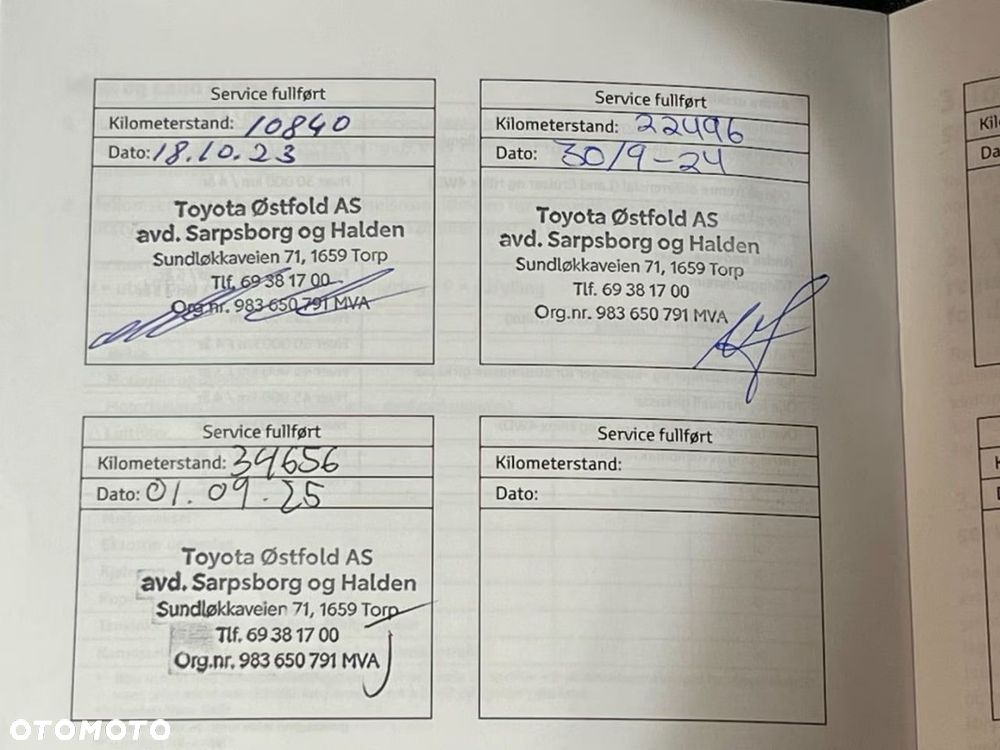 Service fullført
Kilometerstand: 10840
Dato: 18.10.23
Toyota Østfold AS
avd. Sarpsborg og Halden
Sundløkkaveien 71, 1659 Torp
Tlf. 69 38 17 00
Org.nr. 983 650 791 MVA
Service fullført
Kilometerstand: 22496
Dato: 30/9-24
Toyota Østfold AS
avd. Sarpsborg og Halden
Sundløkkaveien 71, 1659 Torp
Tlf. 69 38 17 00
Org.nr. 983 650 791 MVA
Service fullført
Kilometerstand: 34656
Dato: 01.09.25
Toyota Østfold AS
avd. Sarpsborg og Halden
Sundløkkaveien 71, 1659 Torp
Tlf. 69 38 17 00
Org.nr. 983 650 791 MVA
Service fullført
Kilometerstand:
Dato:
OTOMOTO